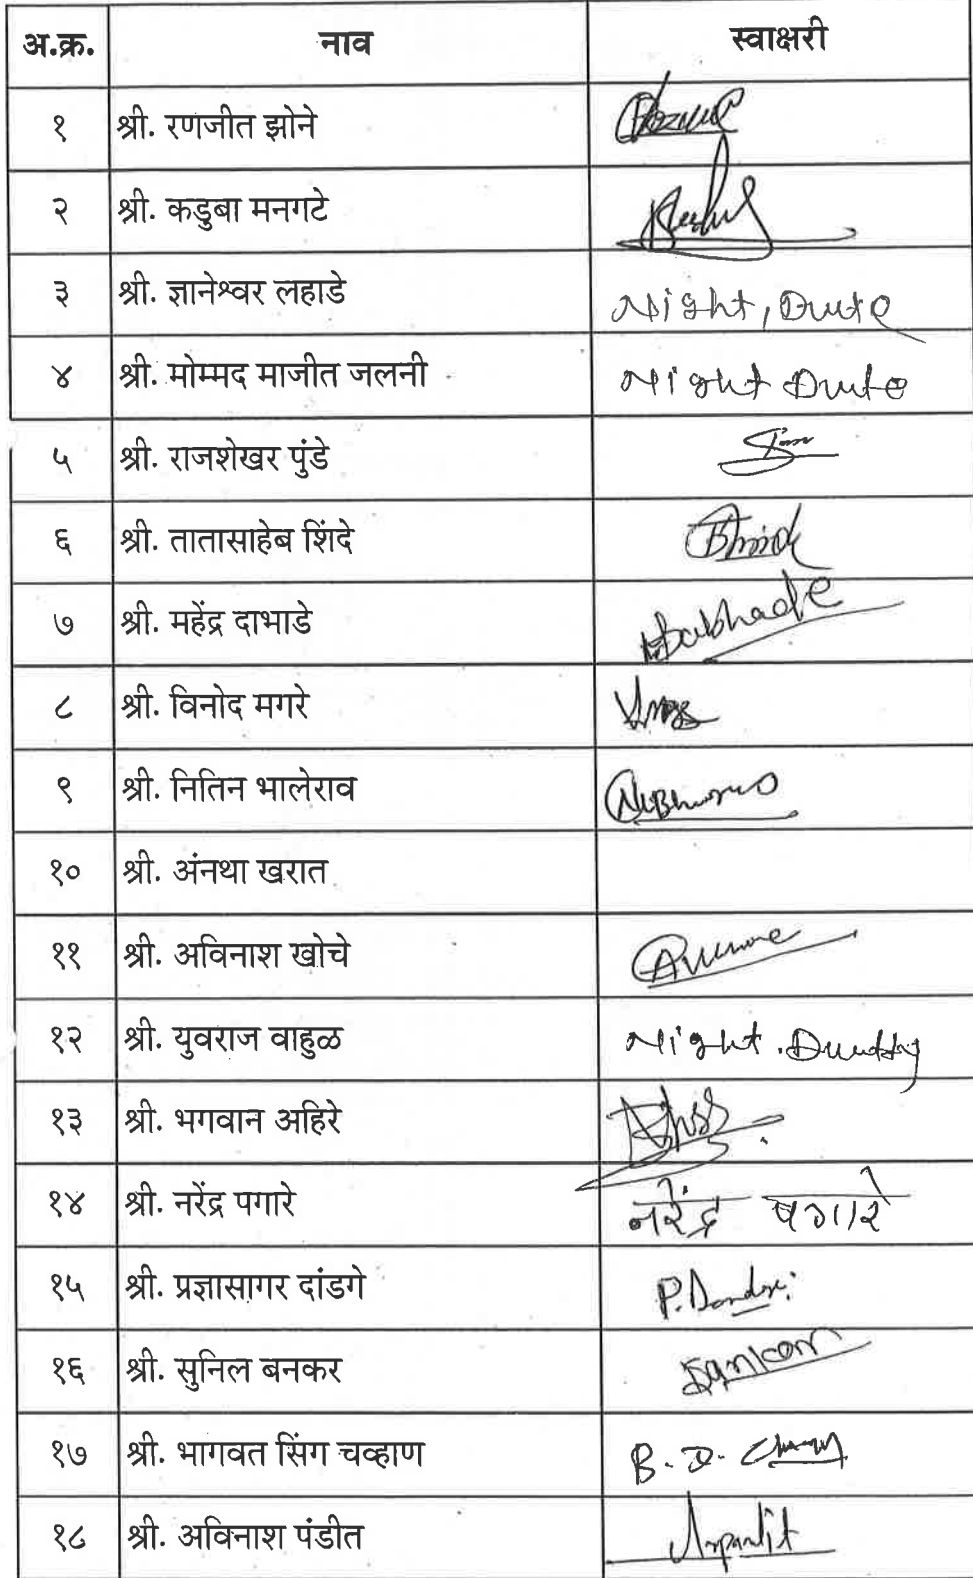 अ.क्र. नाव स्वाक्षरी
१ श्री. रणजीत झोने
२ श्री. कडुबा मनगटे
३ श्री. ज्ञानेश्वर लहाडे Night, Dute
४ श्री. मोम्मद माजीत जलनी Night Dute
५ श्री. राजशेखर पुंडे
६ श्री. तातासाहेब शिंदे
७ श्री. महेंद्र दाभाडे Dabhade
८ श्री. विनोद मगरे
९ श्री. नितिन भालेराव
१० श्री. अंनथा खरात
११ श्री. अविनाश खोचे
१२ श्री. युवराज वाहुळ Night. Duutty
१३ श्री. भगवान अहिरे
१४ श्री. नरेंद्र पगारे नरेंद्र पगारे
१५ श्री. प्रज्ञासागर दांडगे
१६ श्री. सुनिल बनकर
१७ श्री. भागवत सिंग चव्हाण
१८ श्री. अविनाश पंडीत